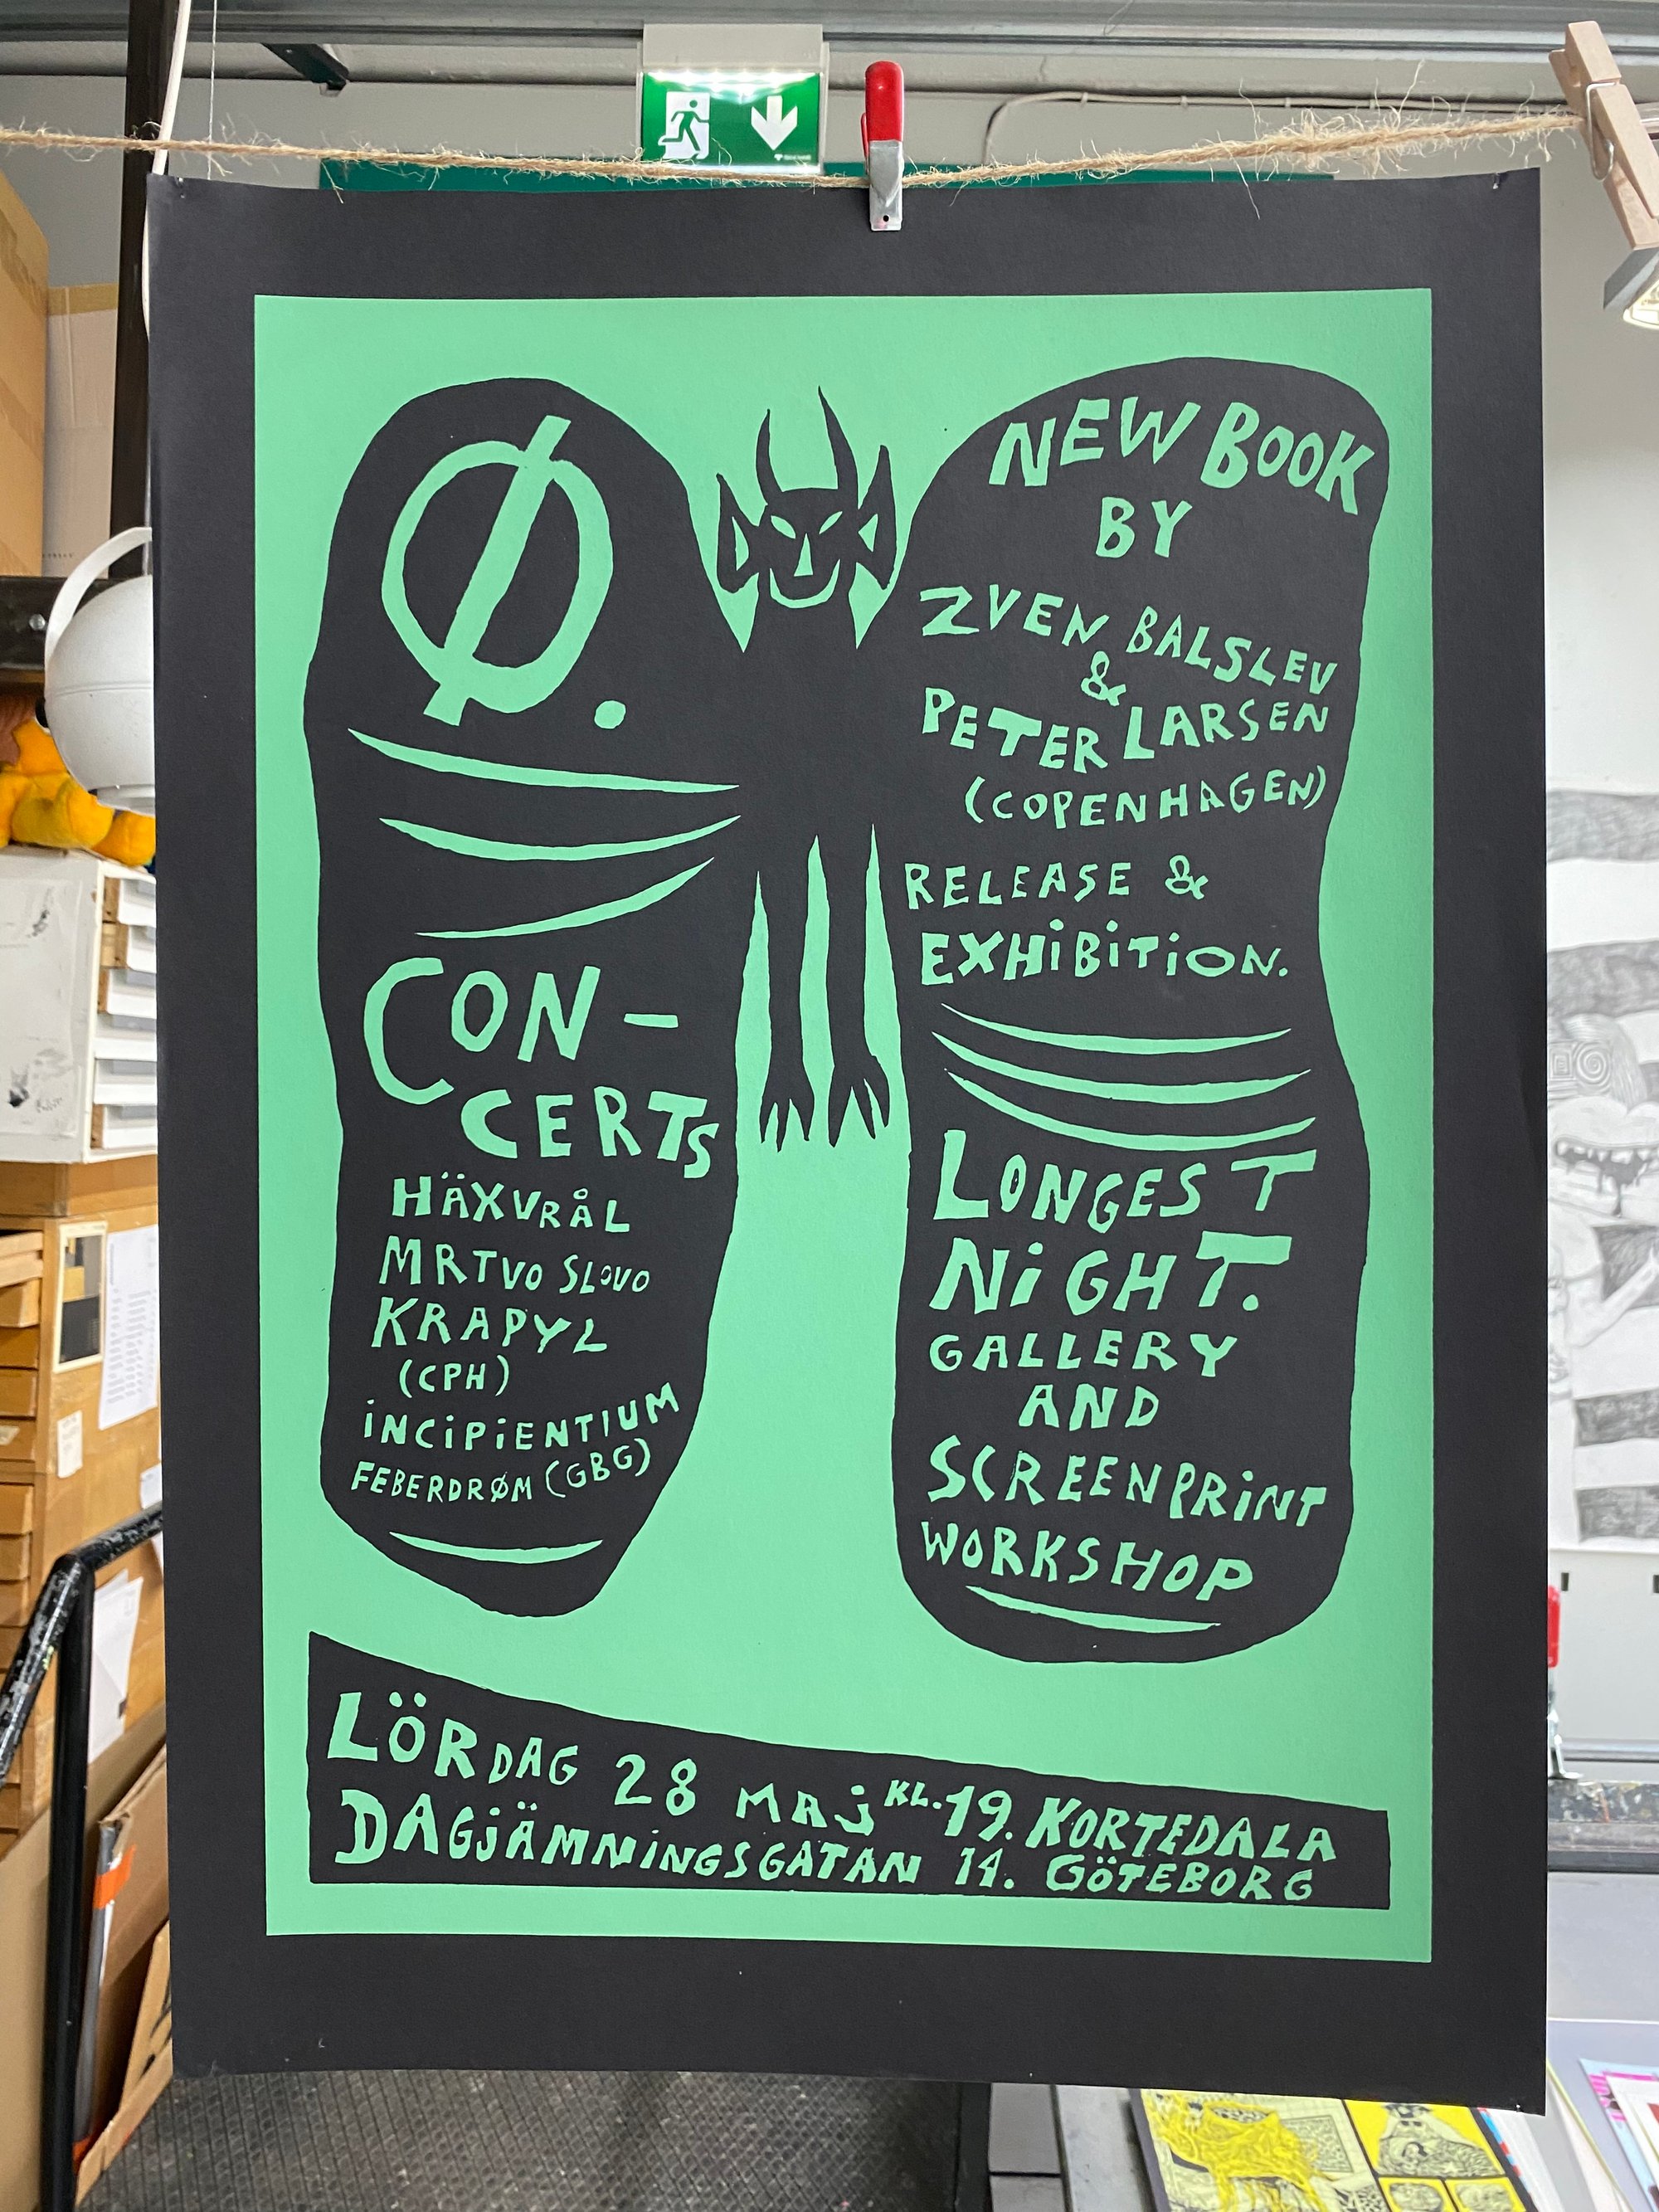 Ø.
CON-
CERTS
HÄXVRÅL
MRTVO SLOVO
KRAPYL
(CPH)
iNCiPiENTIUM
FEBERDRØM (GBG)
NEW BOOK
BY
ZVEN BALSLEV
&
PETER LARSEN
(COPENHAGEN)
RELEASE &
EXHiBiTiON.
LONGEST
NiGHT.
GALLERY
AND
SCREENPRiNT
WORKSHOP
LÖRDAG 28 MAj KL. 19. KORTEDALA
DAGjÄMNiNGSGATAN 14. GÖTEBORG